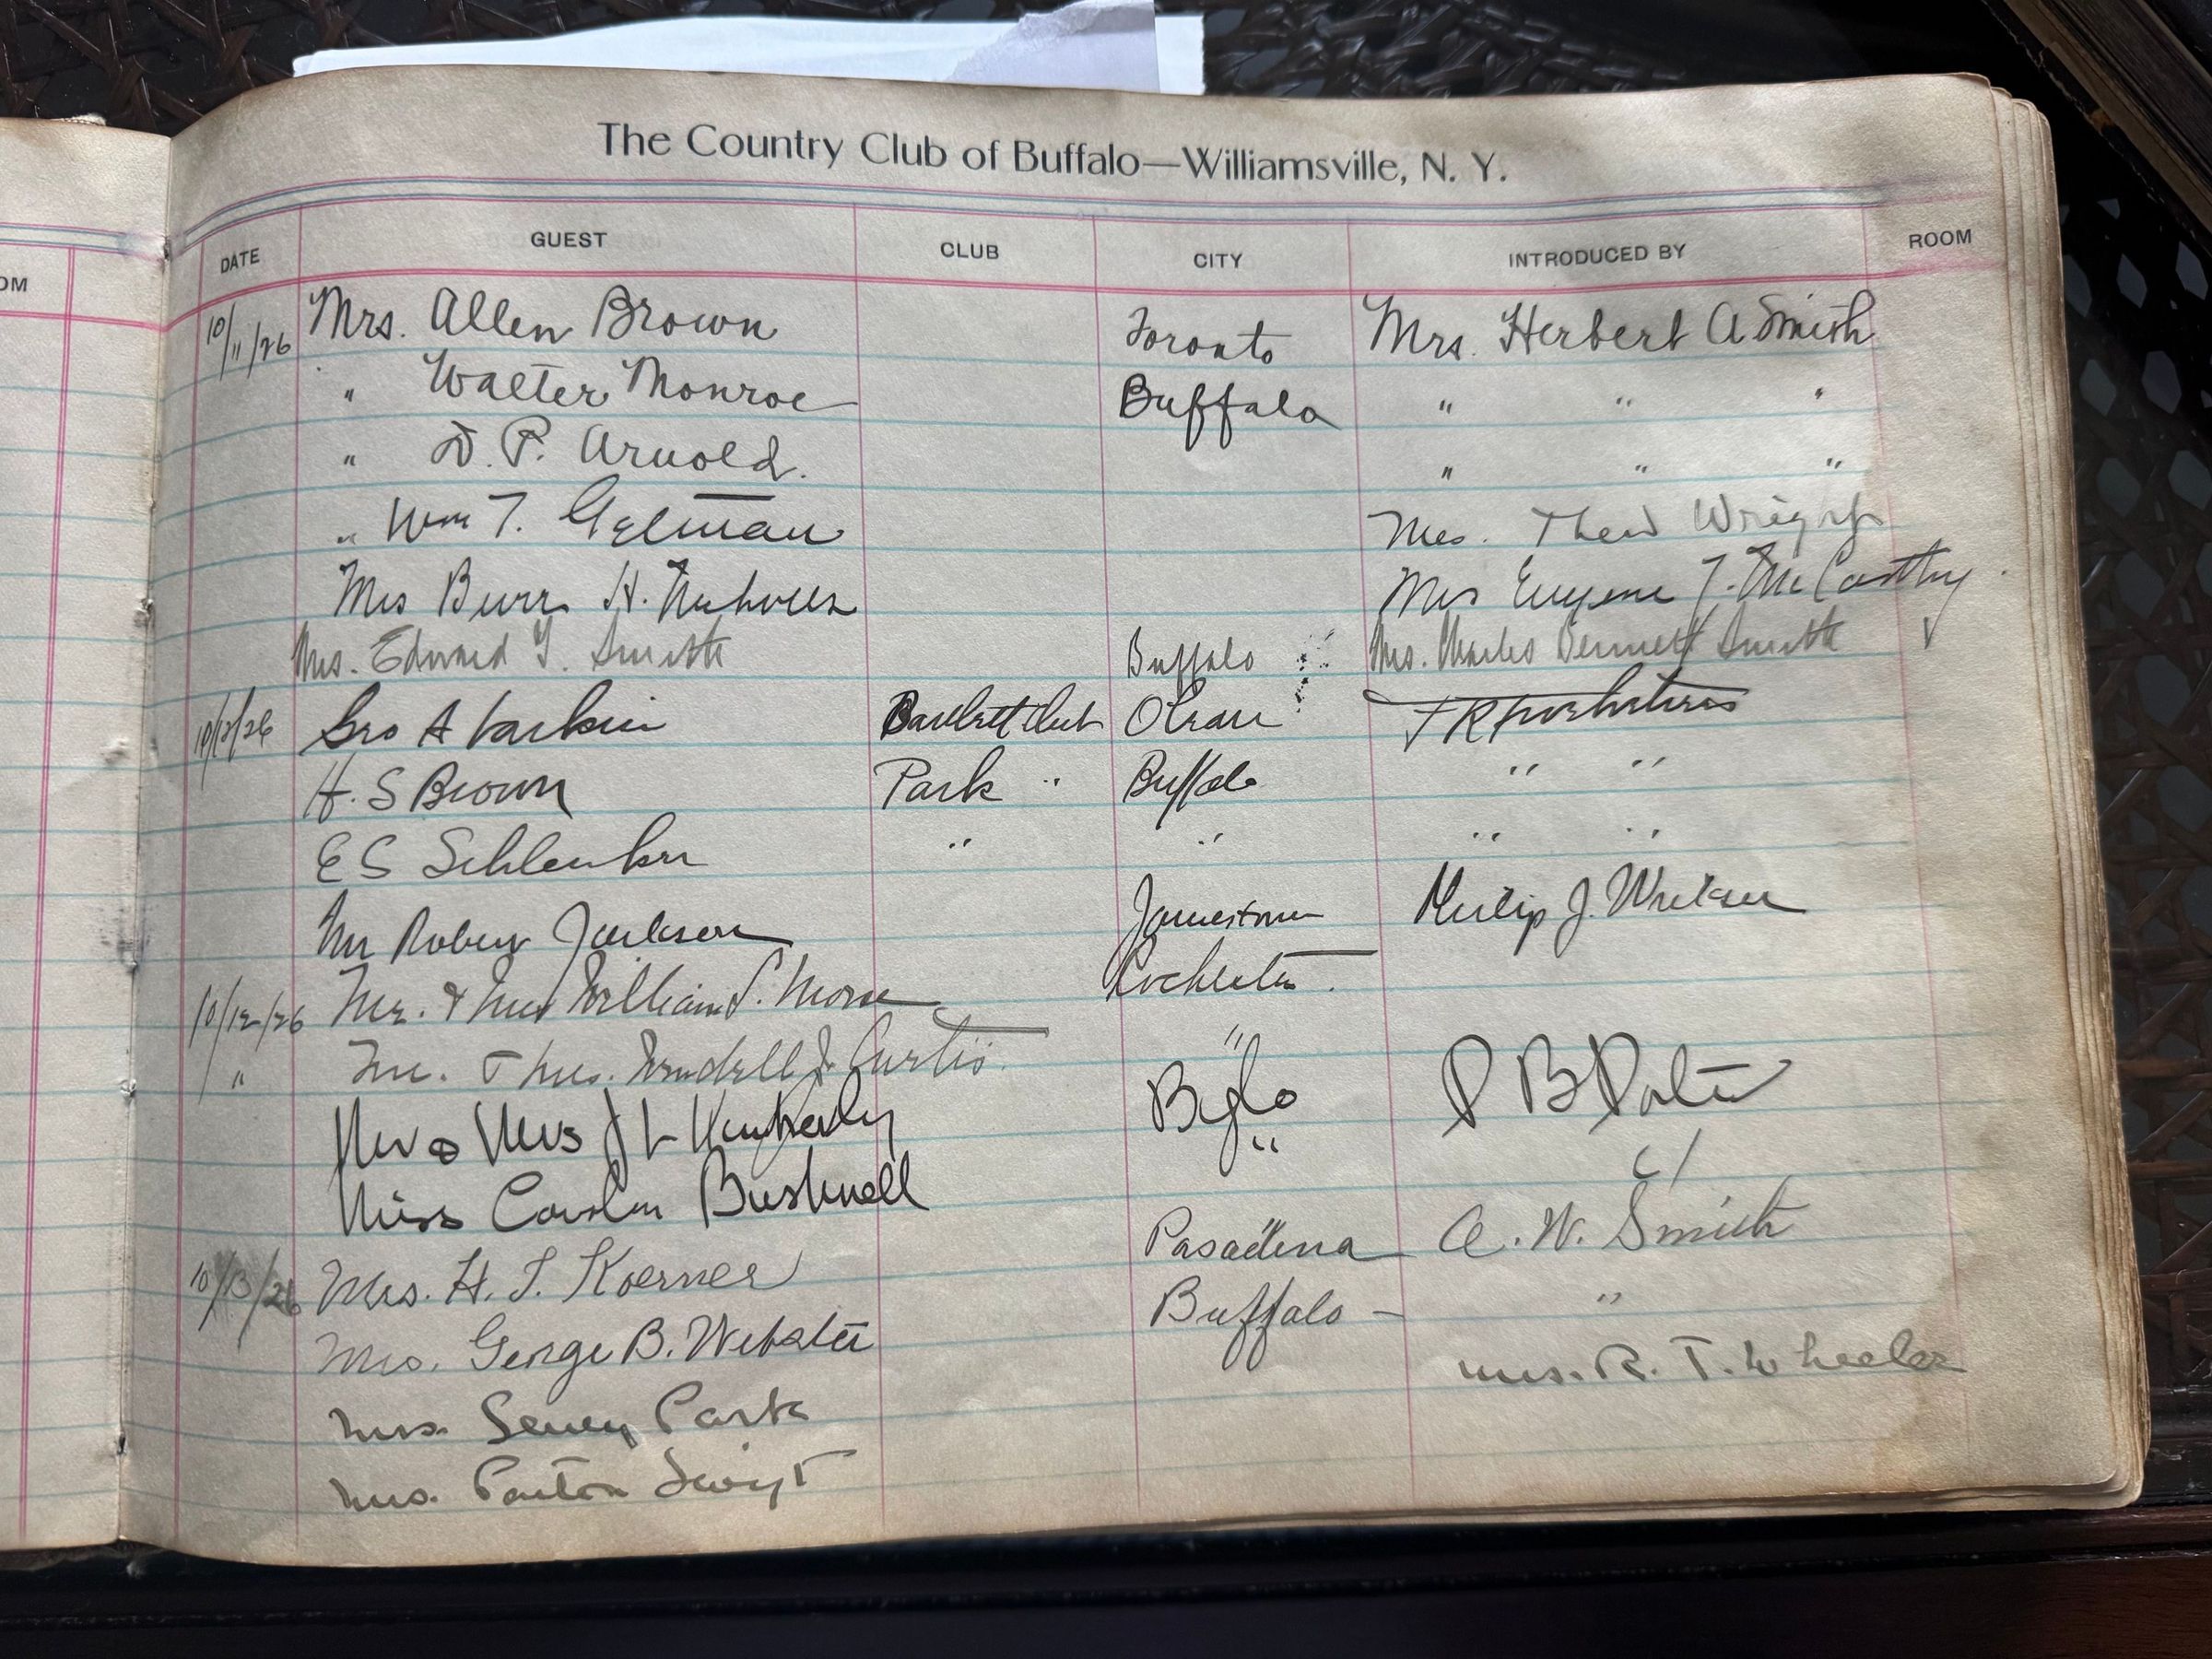 The Country Club of Buffalo—Williamsville, N. Y.
OM
DATE GUEST CLUB CITY INTRODUCED BY ROOM
10/11/26 Mrs. Allen Brown Toronto Mrs. Herbert A Smith
" Walter Monroe Buffalo " " "
" D. P. Arnold. " " "
" Wm T. Mrs. Wright
Mrs Burr H. Nicholls Mrs Eugene T. McCarthy
Mrs. Edward J. Smith Buffalo Mrs. Charles Bennett Smith
10/12/26 Geo A Larkin Bartlett Club Olean
H. S Brown Park " Buffalo " "
E S Schlenker " " " "
Mr Robert Jackson Jamestown Philip J.
10/12/26 Mr. & Mrs William S. Morse Rochester.
" Mr. & Mrs. Wendell J. Curtis. "
Mr & Mrs J L Kimberly Bflo P B
Miss Carolyn Bushnell " "
10/13/26 Mrs. H. T. Koerner Pasadena A. W. Smith
Mrs. George B. Webster Buffalo — "
Mrs. Park Mrs. R. T. Wheeler
Mrs. Paxton Swift